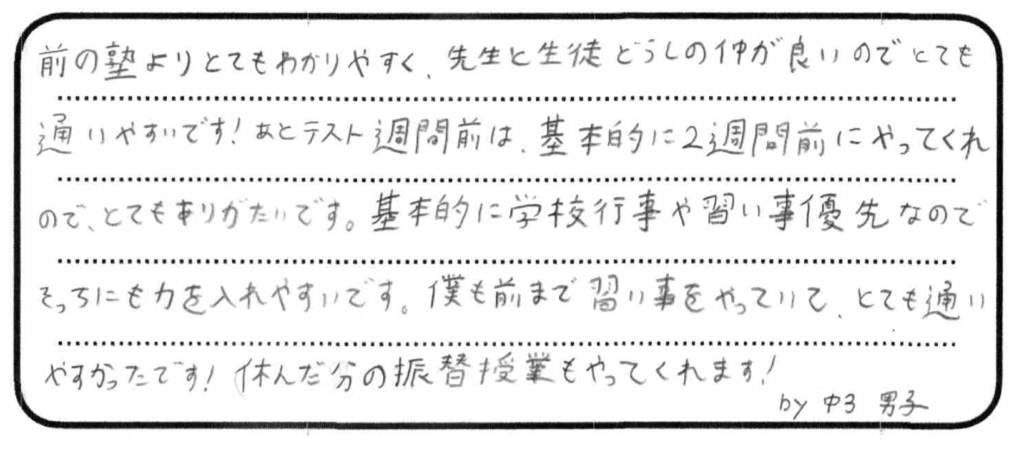 前の塾よりとてもわかりやすく、先生と生徒どうしの仲が良いのでとても
通いやすいです！あとテスト週間前は、基本的に2週間前にやってくれ
ので、とてもありがたいです。基本的に学校行事や習い事優先なので
そっちにも力を入れやすいです。僕も前まで習い事をやっていて、とても通い
やすかったです！休んだ分の振替授業もやってくれます！
by 中3 男子